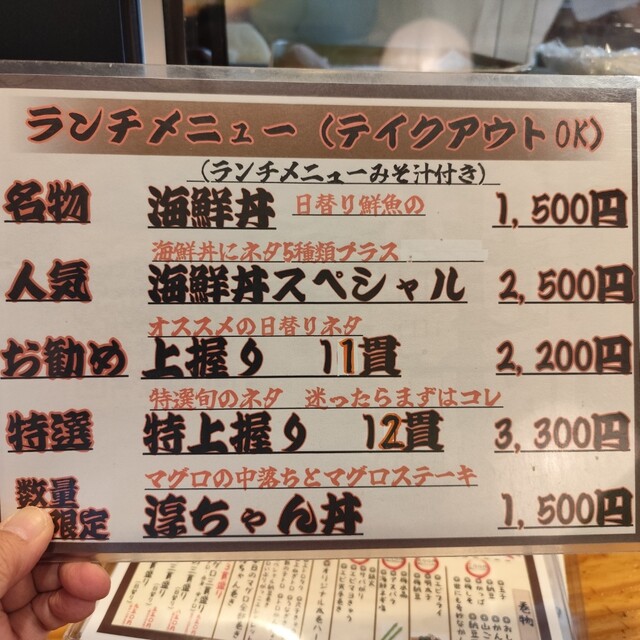 ランチメニュー(テイクアウトOK)
(ランチメニューみそ汁付き)
名物 海鮮丼 日替り鮮魚の 1,500円
海鮮丼にネタ5種類プラス
人気 海鮮丼スペシャル 2,500円
オススメの日替りネタ
お勧め 上握り 11貫 2,200円
特選旬のネタ 迷ったらまずはコレ
特選 特上握り 12貫 3,300円
マグロの中落ちとマグロステーキ
数量限定 淳ちゃん丼 1,500円
巻物